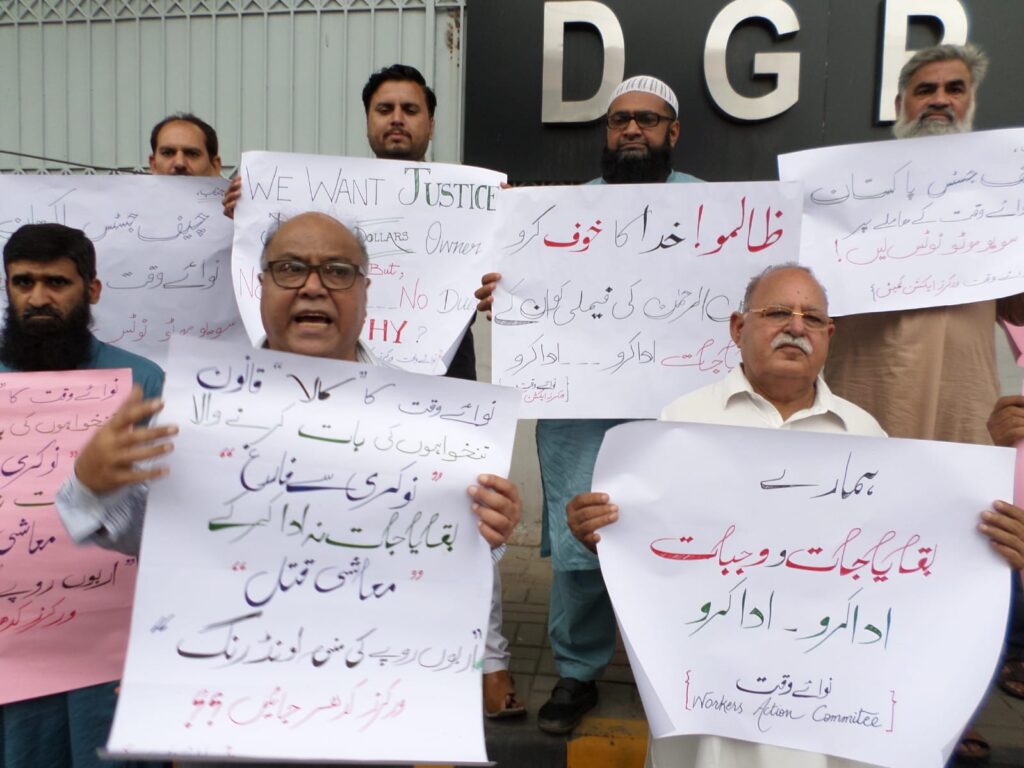 DGP
WE WANT JUSTICE
DOLLARS Owner
But,
No No
WHY?
ظالمو! خدا کا خوف کرو
کی فیملی کو ان کے
ادا کرو --- ادا کرو
نوائے وقت
جسٹس پاکستان
نوائے وقت کے معاملے پر
سوموٹو نوٹس لیں!
چیف جسٹس
نوائے وقت
سوموٹو نوٹس
نوائے وقت کا "کالا" قانون
تنخواہوں کی بات کرنے والا
"نوکری سے فارغ"
بقایاجات نہ ادا کرکے
"معاشی قتل"
اربوں روپے کی منی لانڈرنگ
ورکرز کدھر جائیں ؟؟
ہمارے
بقایاجات و وجبات
ادا کرو - ادا کرو
نوائے وقت
[Workers Action Commitee]
نوائے وقت کا
تنخواہوں کی
"نوکری
معاشی
"اربوں روپے
ورکرز کدھر